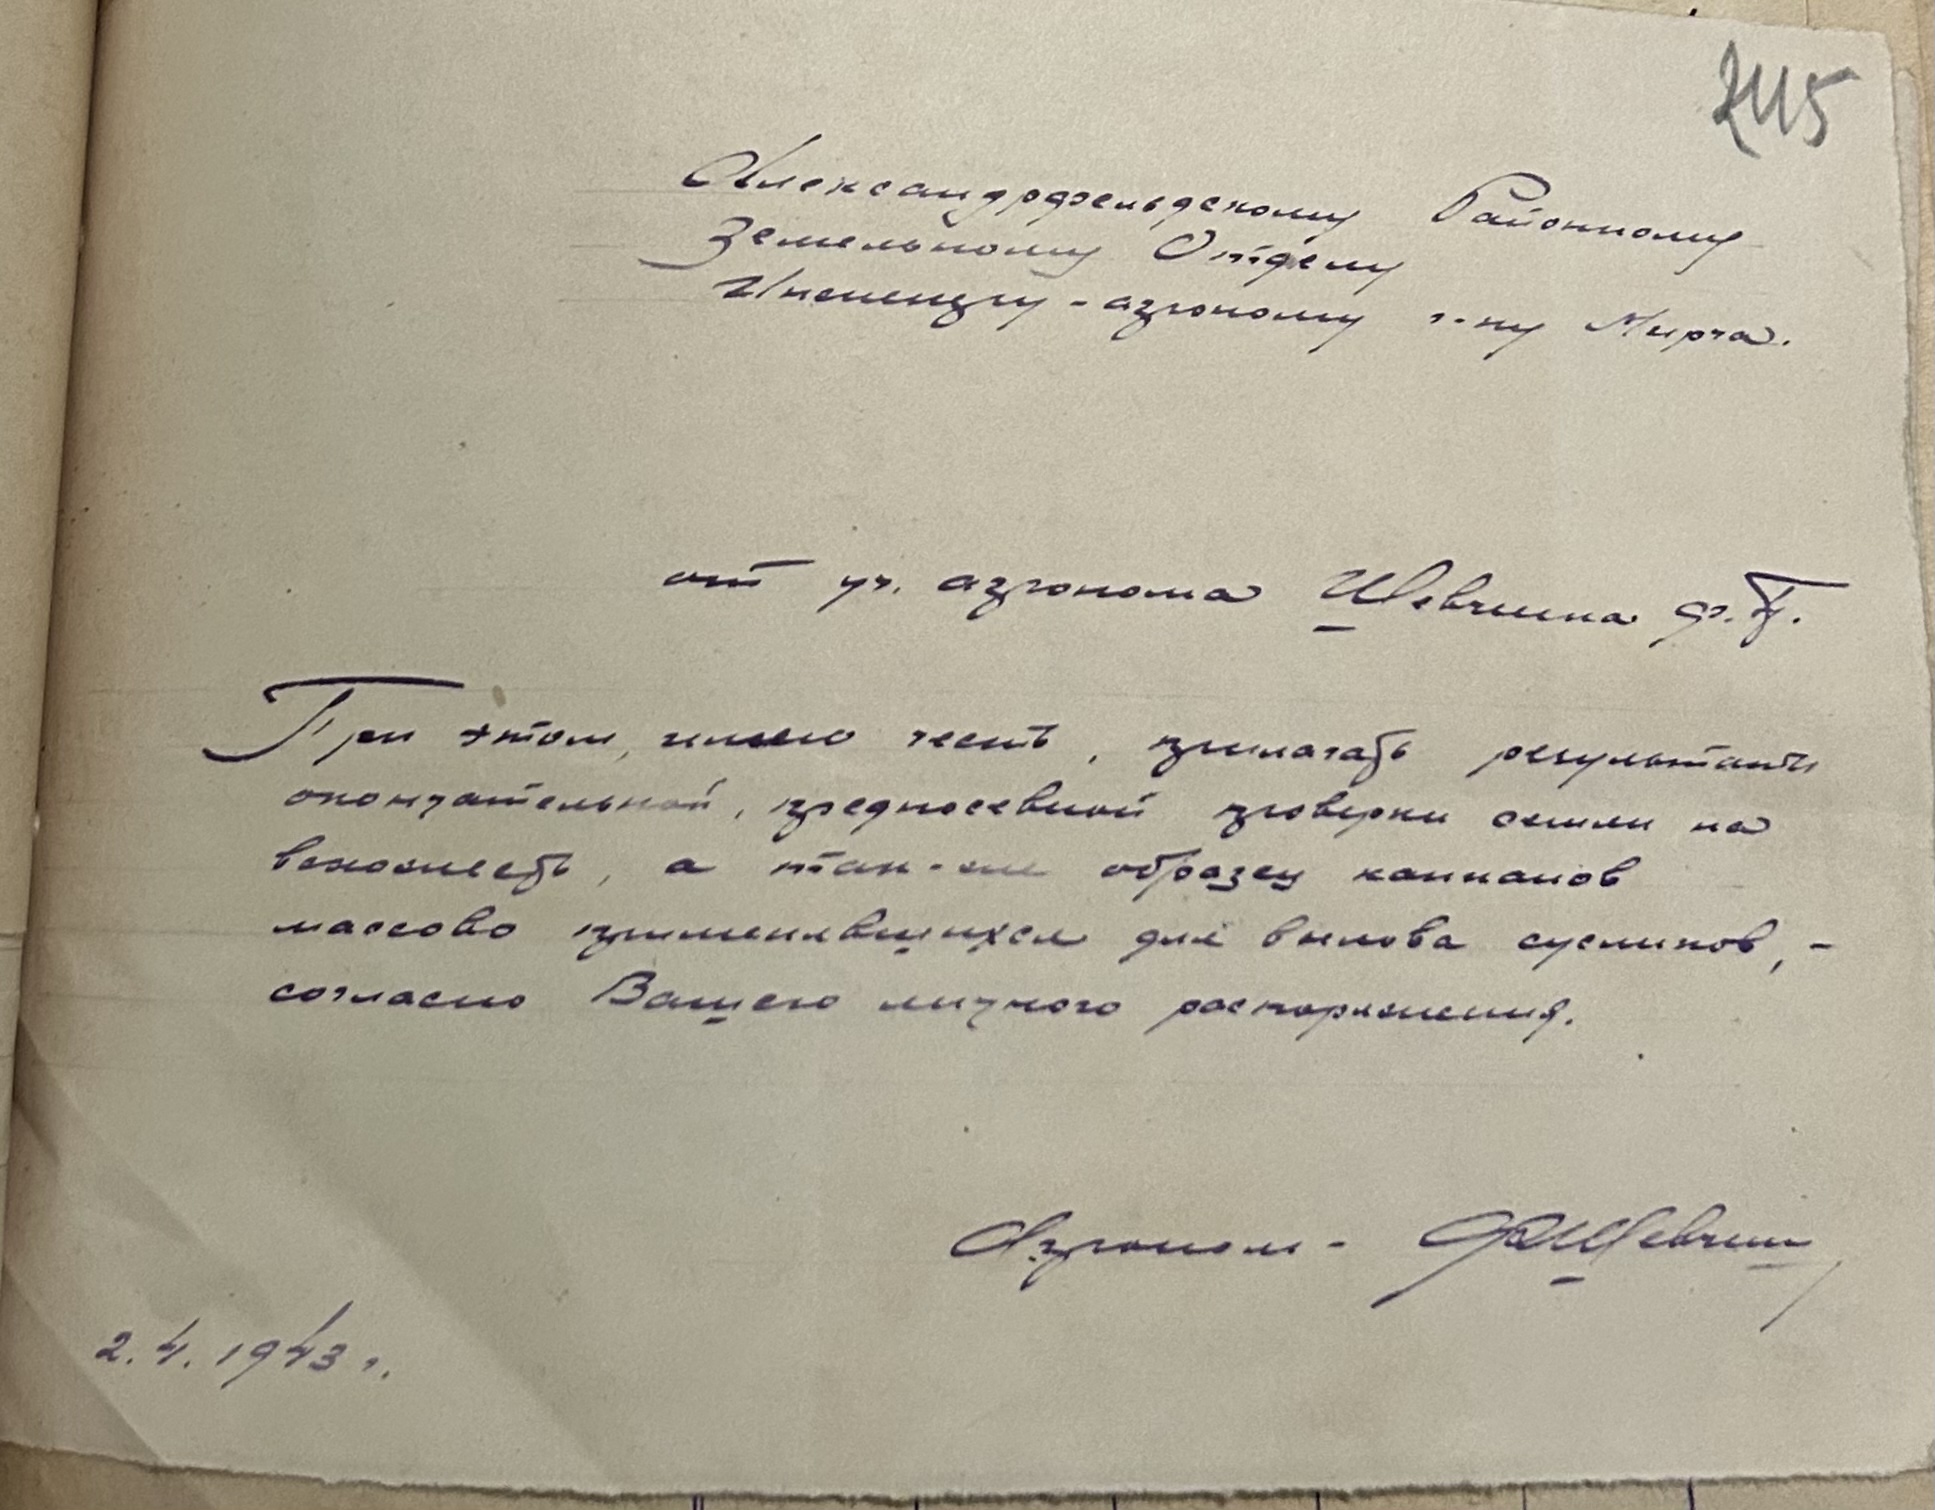 245
Александрфельдскому Районному
Земельному Отделу
Инженеру-агроному г-ну Мирча.
от уч. агронома Шевчина Ф. П.
При этом, имею честь, прилагать результаты
окончательной, предпосевной проверки семян на
всхожесть, а так-же образец капканов
массово применявшихся для вылова сусликов, -
согласно Вашего личного распоряжения.
Агроном - ФПШевчин
2.4.1943 г.